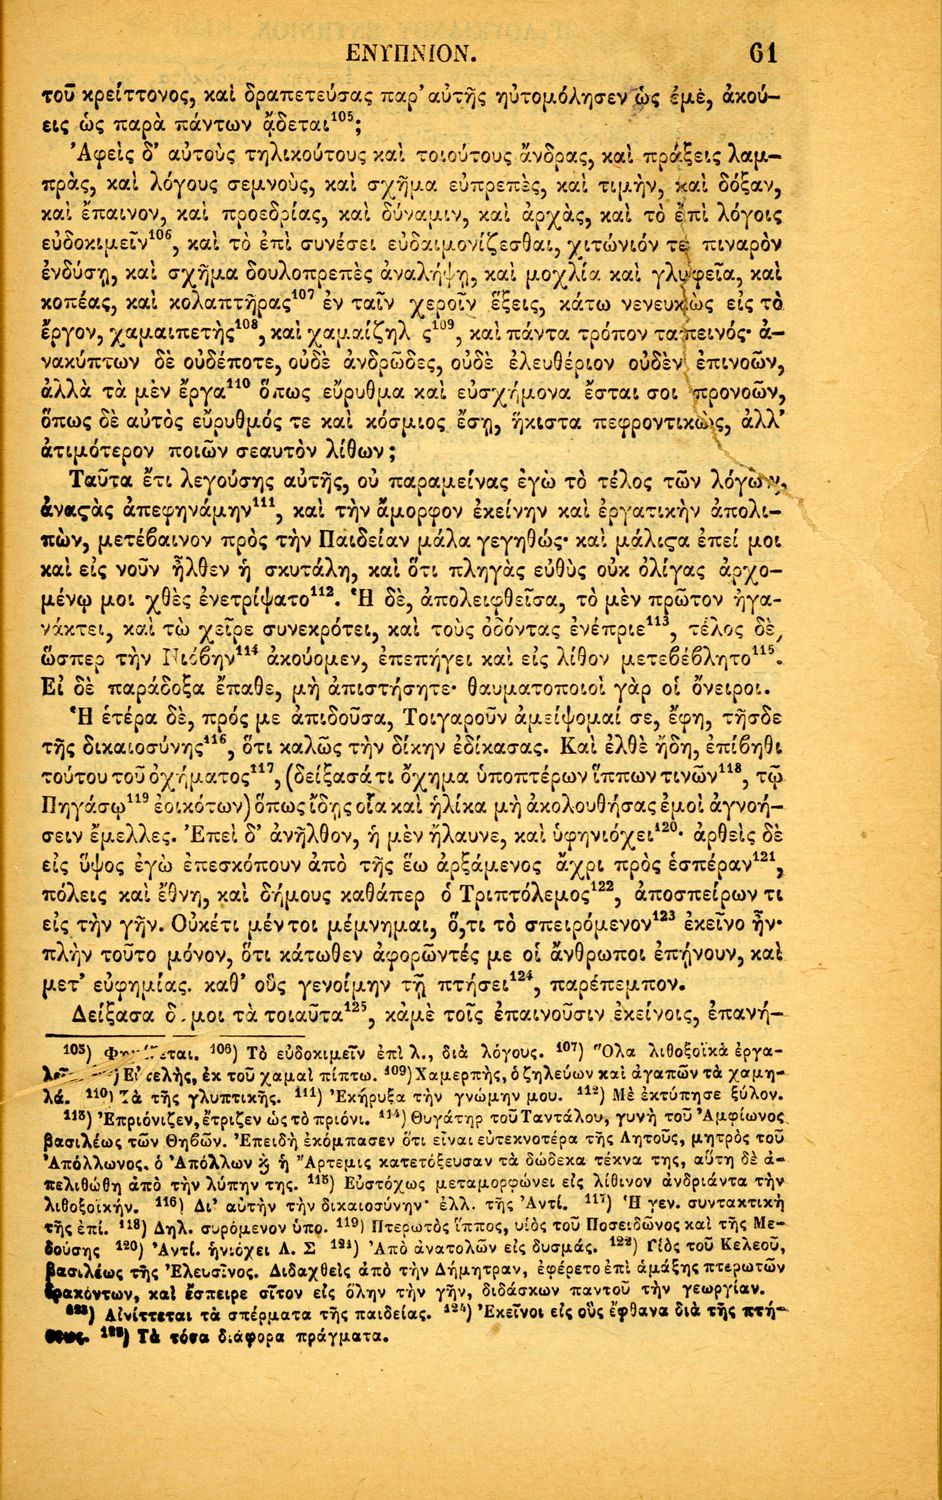 ΕΝΥΠΝΙΟΝ. 61
τοῦ κρείττονος, καὶ δραπετεύσας παρ' αὐτῆς ηὐτομόλησεν ὡς ἐμὲ, ἀκού–
εις ὡς παρὰ πάντων ᾄδεται¹⁰⁵;
Ἀφεὶς δ' αὐτοὺς τηλικούτους καὶ τοιούτους ἄνδρας, καὶ πράξεις λαμ–
πρὰς, καὶ λόγους σεμνοὺς, καὶ σχῆμα εὐπρεπὲς, καὶ τιμὴν, καὶ δόξαν,
καὶ ἔπαινον, καὶ προεδρίας, καὶ δύναμιν, καὶ ἀρχὰς, καὶ τὸ ἐπὶ λόγοις
εὐδοκιμεῖν¹⁰⁶, καὶ τὸ ἐπὶ συνέσει εὐδαιμονίζεσθαι, χιτώνιόν τε πιναρὸν
ἐνδύσῃ, καὶ σχῆμα δουλοπρεπὲς ἀναλήψῃ, καὶ μοχλία καὶ γλυφεῖα, καὶ
κοπέας, καὶ κολαπτῆρας¹⁰⁷ ἐν ταῖν χεροῖν ἕξεις, κάτω νενευκὼς εἰς τὸ
ἔργον, χαμαιπετὴς¹⁰⁸, καὶ χαμαίζηλ ς¹⁰⁹, καὶ πάντα τρόπον ταπεινός· ἀ–
νακύπτων δὲ οὐδέποτε, οὐδὲ ἀνδρῶδες, οὐδὲ ἐλευθέριον οὐδὲν ἐπινοῶν,
ἀλλὰ τὰ μὲν ἔργα¹¹⁰ ὅπως εὔρυθμα καὶ εὐσχήμονα ἔσται σοι προνοῶν,
ὅπως δὲ αὐτὸς εὔρυθμός τε καὶ κόσμιος ἔσῃ, ἥκιστα πεφροντικὼς, ἀλλ'
ἀτιμότερον ποιῶν σεαυτὸν λίθων;
Ταῦτα ἔτι λεγούσης αὐτῆς, οὐ παραμείνας ἐγὼ τὸ τέλος τῶν λόγων,
ἀναςὰς ἀπεφηνάμην¹¹¹, καὶ τὴν ἄμορφον ἐκείνην καὶ ἐργατικὴν ἀπολι–
πὼν, μετέβαινον πρὸς τὴν Παιδείαν μάλα γεγηθώς· καὶ μάλιςα ἐπεί μοι
καὶ εἰς νοῦν ἦλθεν ἡ σκυτάλη, καὶ ὅτι πληγὰς εὐθὺς οὐκ ὀλίγας ἀρχο–
μένῳ μοι χθὲς ἐνετρίψατο¹¹². Ἡ δὲ, ἀπολειφθεῖσα, τὸ μὲν πρῶτον ἠγα–
νάκτει, καὶ τὼ χεῖρε συνεκρότει, καὶ τοὺς ὀδόντας ἐνέπριε¹¹³, τέλος δὲ,
ὥσπερ τὴν Νιόβην¹¹⁴ ἀκούομεν, ἐπεπήγει καὶ εἰς λίθον μετεβέβλητο¹¹⁵.
Εἰ δὲ παράδοξα ἔπαθε, μὴ ἀπιστήσητε· θαυματοποιοὶ γὰρ οἱ ὄνειροι.
Ἡ ἑτέρα δὲ, πρός με ἀπιδοῦσα, Τοιγαροῦν ἀμείψομαί σε, ἔφη, τῆσδε
τῆς δικαιοσύνης¹¹⁶, ὅτι καλῶς τὴν δίκην ἐδίκασας. Καὶ ἐλθὲ ἤδη, ἐπίβηθι
τούτου τοῦ ὀχήματος¹¹⁷, (δείξασά τι ὄχημα ὑποπτέρων ἵππων τινῶν¹¹⁸, τῷ
Πηγάσῳ¹¹⁹ ἐοικότων) ὅπως ἴδῃς οἷα καὶ ἡλίκα μὴ ἀκολουθήσας ἐμοὶ ἀγνοή–
σειν ἔμελλες. Ἐπεὶ δ' ἀνῆλθον, ἡ μὲν ἤλαυνε, καὶ ὑφηνιόχει¹²⁰· ἀρθεὶς δὲ
εἰς ὕψος ἐγὼ ἐπεσκόπουν ἀπὸ τῆς ἕω ἀρξάμενος ἄχρι πρὸς ἑσπέραν¹²¹,
πόλεις καὶ ἔθνη, καὶ δήμους καθάπερ ὁ Τριπτόλεμος¹²², ἀποσπείρων τι
εἰς τὴν γῆν. Οὐκέτι μέντοι μέμνημαι, ὅ,τι τὸ σπειρόμενον¹²³ ἐκεῖνο ἦν·
πλὴν τοῦτο μόνον, ὅτι κάτωθεν ἀφορῶντές με οἱ ἄνθρωποι ἐπῄνουν, καὶ
μετ' εὐφημίας. καθ' οὓς γενοίμην τῇ πτήσει¹²⁴, παρέπεμπον.
Δείξασα δ. μοι τὰ τοιαῦτα¹²⁵, κἀμὲ τοῖς ἐπαινοῦσιν ἐκείνοις, ἐπανή–
¹⁰⁵) ¹⁰⁶) Τὸ εὐδοκιμεῖν ἐπὶ λ., διὰ λόγους. ¹⁰⁷) Ὅλα λιθοξοϊκὰ ἐργα–
Εὐτελὴς, ἐκ τοῦ χαμαὶ πίπτω. ¹⁰⁹) Χαμερπὴς, ὁ ζηλεύων καὶ ἀγαπῶν τὰ χαμη–
λά. ¹¹⁰) Τὰ τῆς γλυπτικῆς. ¹¹¹) Ἐκήρυξα τὴν γνώμην μου. ¹¹²) Μὲ ἐκτύπησε ξύλον.
¹¹³) Ἐπριόνιζεν, ἔτριζεν ὡς τὸ πριόνι. ¹¹⁴) Θυγάτηρ τοῦ Ταντάλου, γυνὴ τοῦ Ἀμφίωνος
βασιλέως τῶν Θηβῶν. Ἐπειδὴ ἐκόμπασεν ὅτι εἶναι εὐτεκνοτέρα τῆς Λητοῦς, μητρὸς τοῦ
Ἀπόλλωνος, ὁ Ἀπόλλων ϗ ἡ Ἄρτεμις κατετόξευσαν τὰ δώδεκα τέκνα της, αὕτη δὲ ἀ–
πελιθώθη ἀπὸ τὴν λύπην της. ¹¹⁵) Εὐστόχως μεταμορφώνει εἰς λίθινον ἀνδριάντα τὴν
λιθοξοϊκήν. ¹¹⁶) Δι' αὐτὴν τὴν δικαιοσύνην· ἐλλ. τῆς Ἀντί. ¹¹⁷) Ἡ γεν. συντακτικὴ
τῆς ἐπί. ¹¹⁸) Δηλ. συρόμενον ὑπο. ¹¹⁹) Πτερωτὸς ἵππος, υἱὸς τοῦ Ποσειδῶνος καὶ τῆς Με–
δούσης ¹²⁰) Ἀντί. ἡνιόχει Λ. Σ ¹²¹) Ἀπὸ ἀνατολῶν εἰς δυσμάς. ¹²²) Γἱὸς τοῦ Κελεοῦ,
βασιλέως τῆς Ἐλευσῖνος. Διδαχθεὶς ἀπὸ τὴν Δήμητραν, ἐφέρετο ἐπὶ ἁμάξης πτερωτῶν
δρακόντων, καὶ ἔσπειρε σῖτον εἰς ὅλην τὴν γῆν, διδάσκων παντοῦ τὴν γεωργίαν.
¹²³) Αἰνίττεται τὰ σπέρματα τῆς παιδείας. ¹²⁴) Ἐκεῖνοι εἰς οὓς ἔφθανα διὰ τῆς πτή–
σεως. ¹²⁵) Τὰ τόσα διάφορα πράγματα.